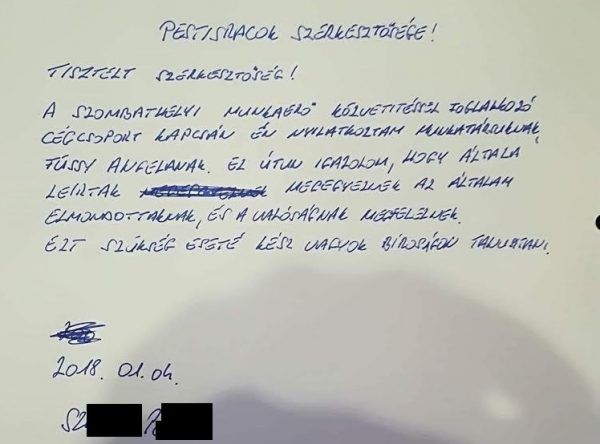 PESTISRÁCOK SZERKESZTŐSÉGE!
TISZTELT SZERKESZTŐSÉG!
A SZOMBATHELYI MUNKAERŐ KÖZVETITÉSSEL FOGLALKOZÓ
CÉGCSOPORT KAPCSÁN ÉN NYILATKOZTAM MUNKATÁRSUKNAK,
FÜSSY ANGELÁNAK. EZ ÚTON IGAZOLOM, HOGY ÁLTALA
LEÍRTAK MEGEGYEZNEK AZ ÁLTALAM
ELMONDOTTAKNAK, ÉS A VALÓSÁGNAK MEGFELELNEK.
EZT SZÜKSÉG ESETÉ KÉSZ VAGYOK BÍRÓSÁGON TANUSÍTANI.
2018. 01. 04.
SZ